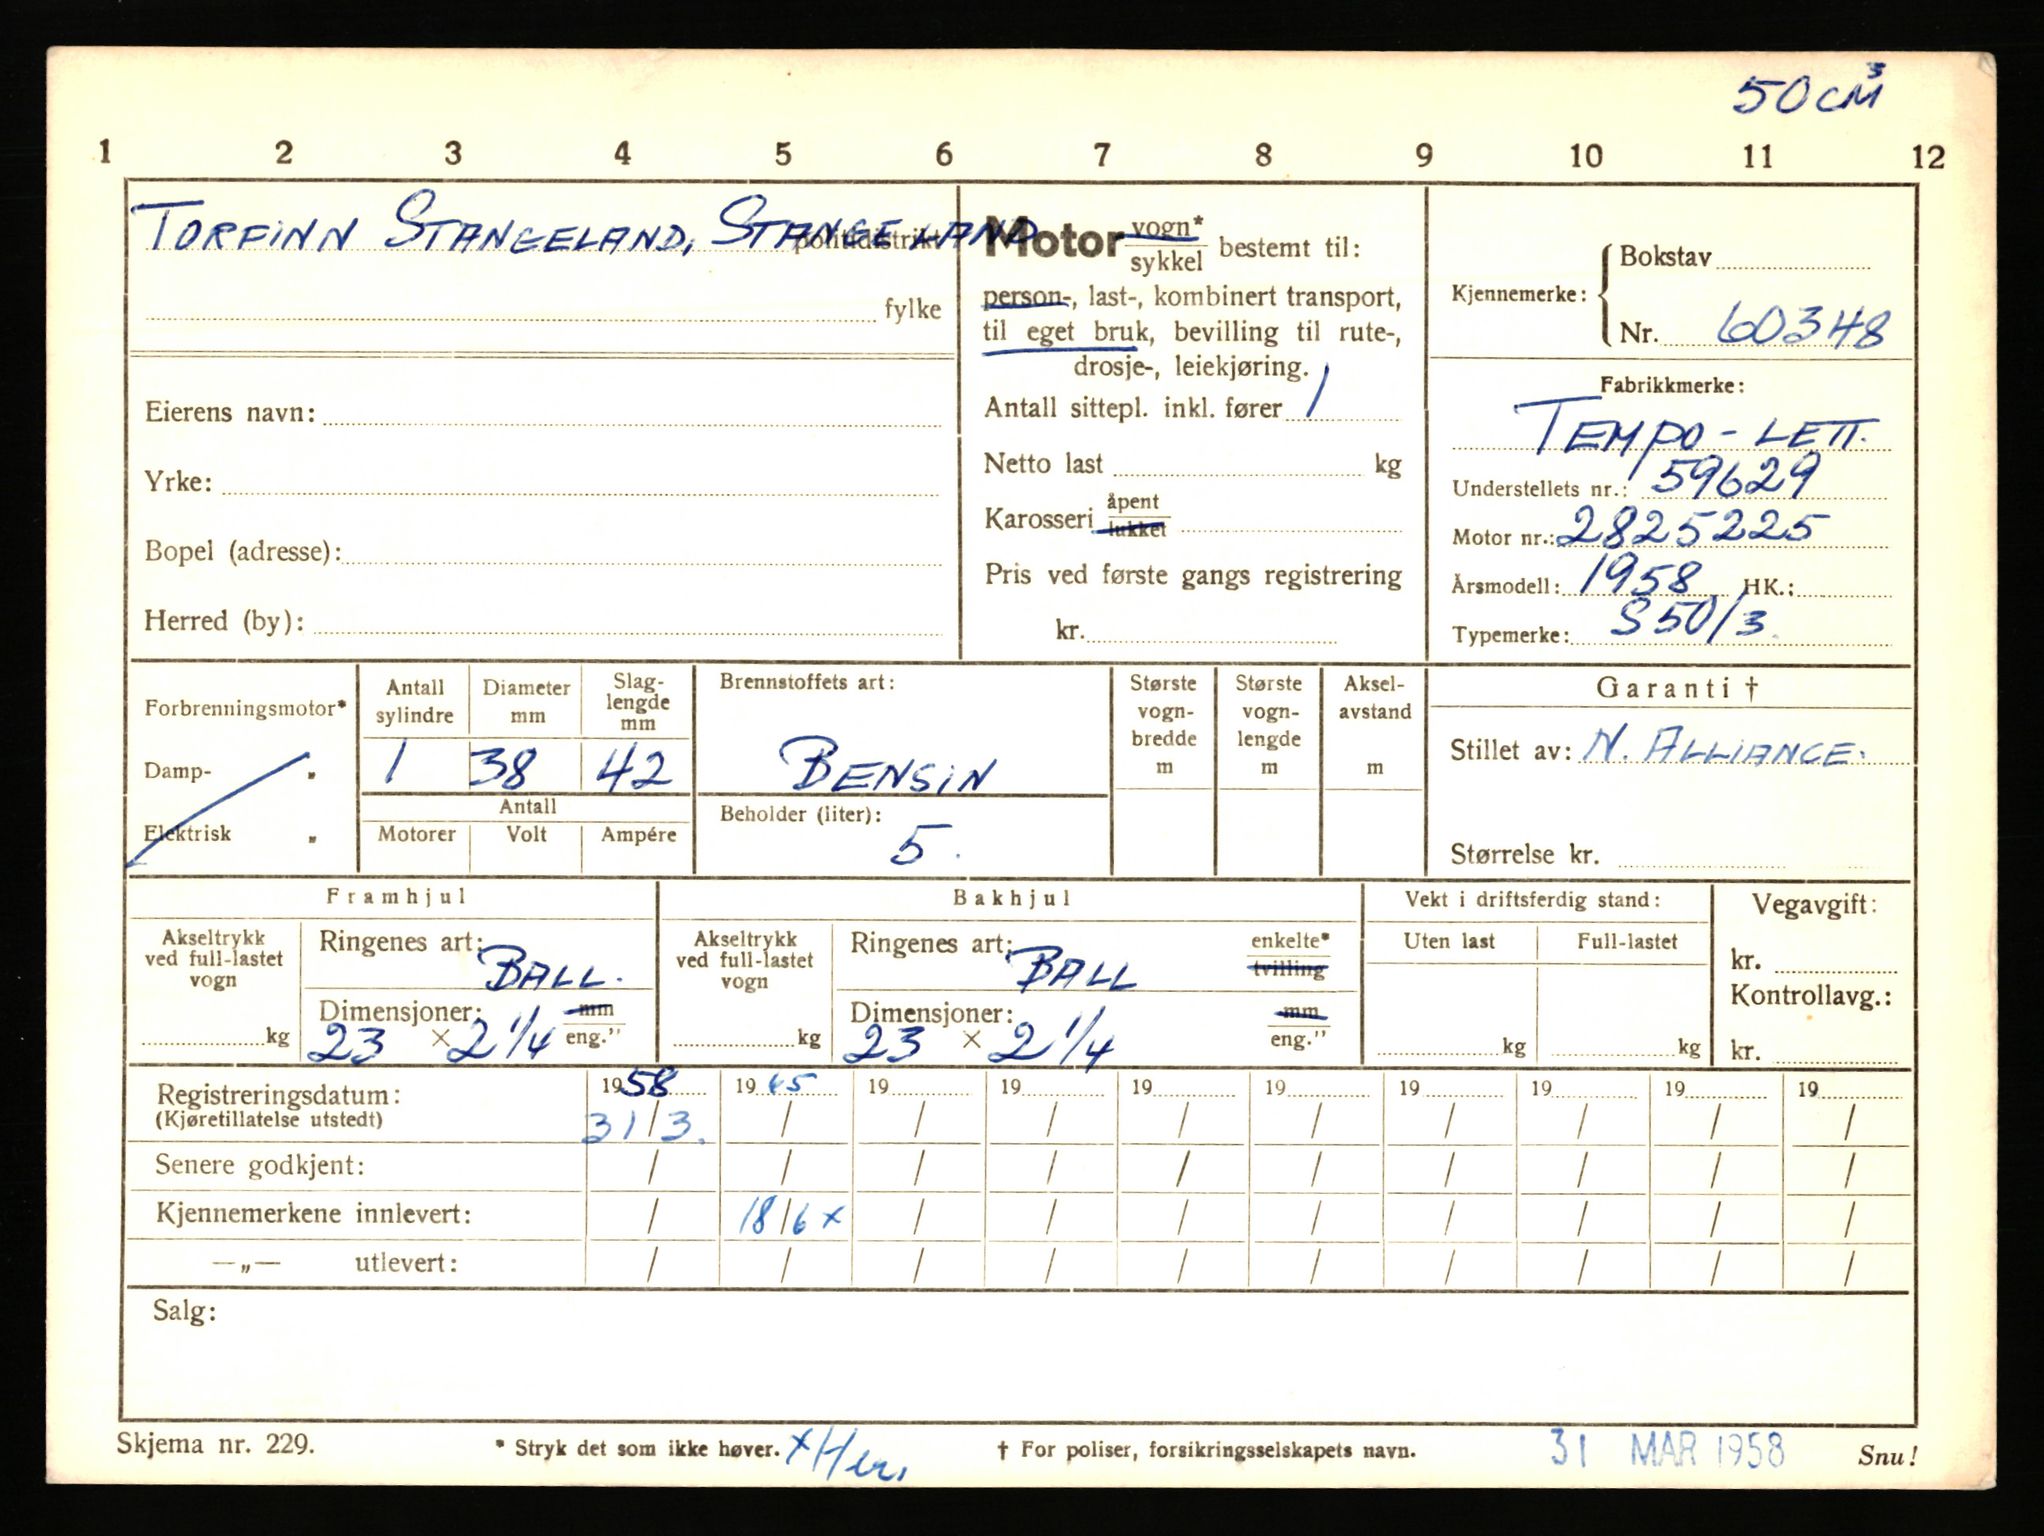 50 cm³
1 2 3 4 5 6 7 8 9 10 11 12
TORFINN STANGELAND, STANGELAND
politidistrikt
fylke
Eierens navn:
Yrke:
Bopel (adresse):
Herred (by):
Motor vogn* bestemt til:
sykkel
person-, last-, kombinert transport,
til eget bruk, bevilling til rute-,
drosje-, leiekjøring.
Antall sittepl. inkl. fører 1
Netto last kg
Karosseri åpent
lukket
Pris ved første gangs registrering
kr.
Kjennemerke: Bokstav
Nr. 60348
Fabrikkmerke:
TEMPO - LETT.
Understellets nr.: 59629
Motor nr.: 2825225
Årsmodell: 1958 HK.:
Typemerke: S50/3.
Forbrenningsmotor*
Damp- „
Elektrisk „
Antall sylindre
Diameter mm
Slag-lengde mm
1 38 42
Antall
Motorer Volt Ampére
Brennstoffets art:
BENSIN
Beholder (liter):
5.
Største vogn-bredde m
Største vogn-lengde m
Aksel-avstand m
Garanti †
Stillet av: N. ALLIANCE.
Størrelse kr.
Framhjul
Akseltrykk ved full-lastet vogn
kg
Ringenes art:
BALL.
Dimensjoner: mm
23 × 2 1/4 eng."
Bakhjul
Akseltrykk ved full-lastet vogn
kg
Ringenes art: enkelte*
BALL tvilling
Dimensjoner: mm
23 × 2 1/4 eng."
Vekt i driftsferdig stand:
Uten last Full-lastet
kg kg
Vegavgift:
kr.
Kontrollavg.:
kr.
Registreringsdatum: 1958 1965 19 19 19 19 19 19 19 19
(Kjøretillatelse utstedt) 31/3. / / / / / / / / /
Senere godkjent: / / / / / / / / / /
Kjennemerkene innlevert: / 18/6 x / / / / / / / /
—„— utlevert: / / / / / / / / / /
Salg:
Skjema nr. 229. * Stryk det som ikke høver. † For poliser, forsikringsselskapets navn. 31 MAR 1958 Snu!